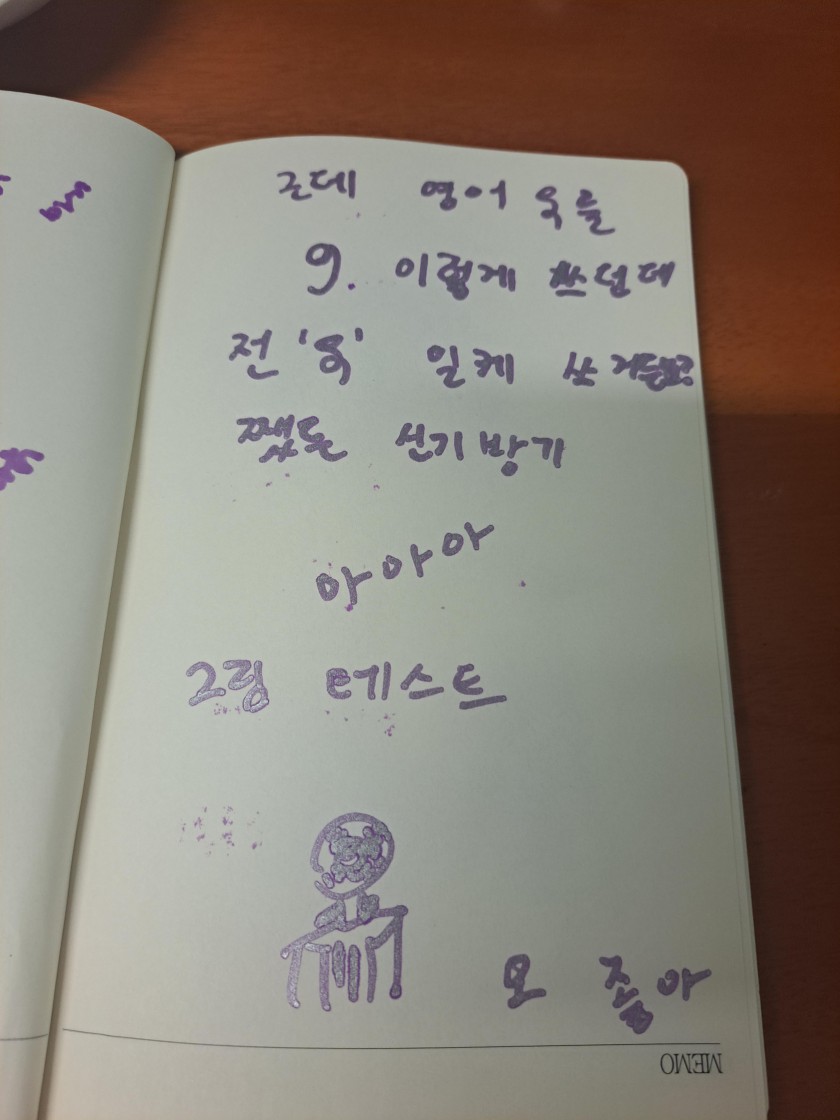 근데 영어 욕을
9. 이렇게 쓰던데
전 '욕' 일케 쓰거든요?
쨌든 신기방기
아아아
그림 테스트
오 좋아
MEMO